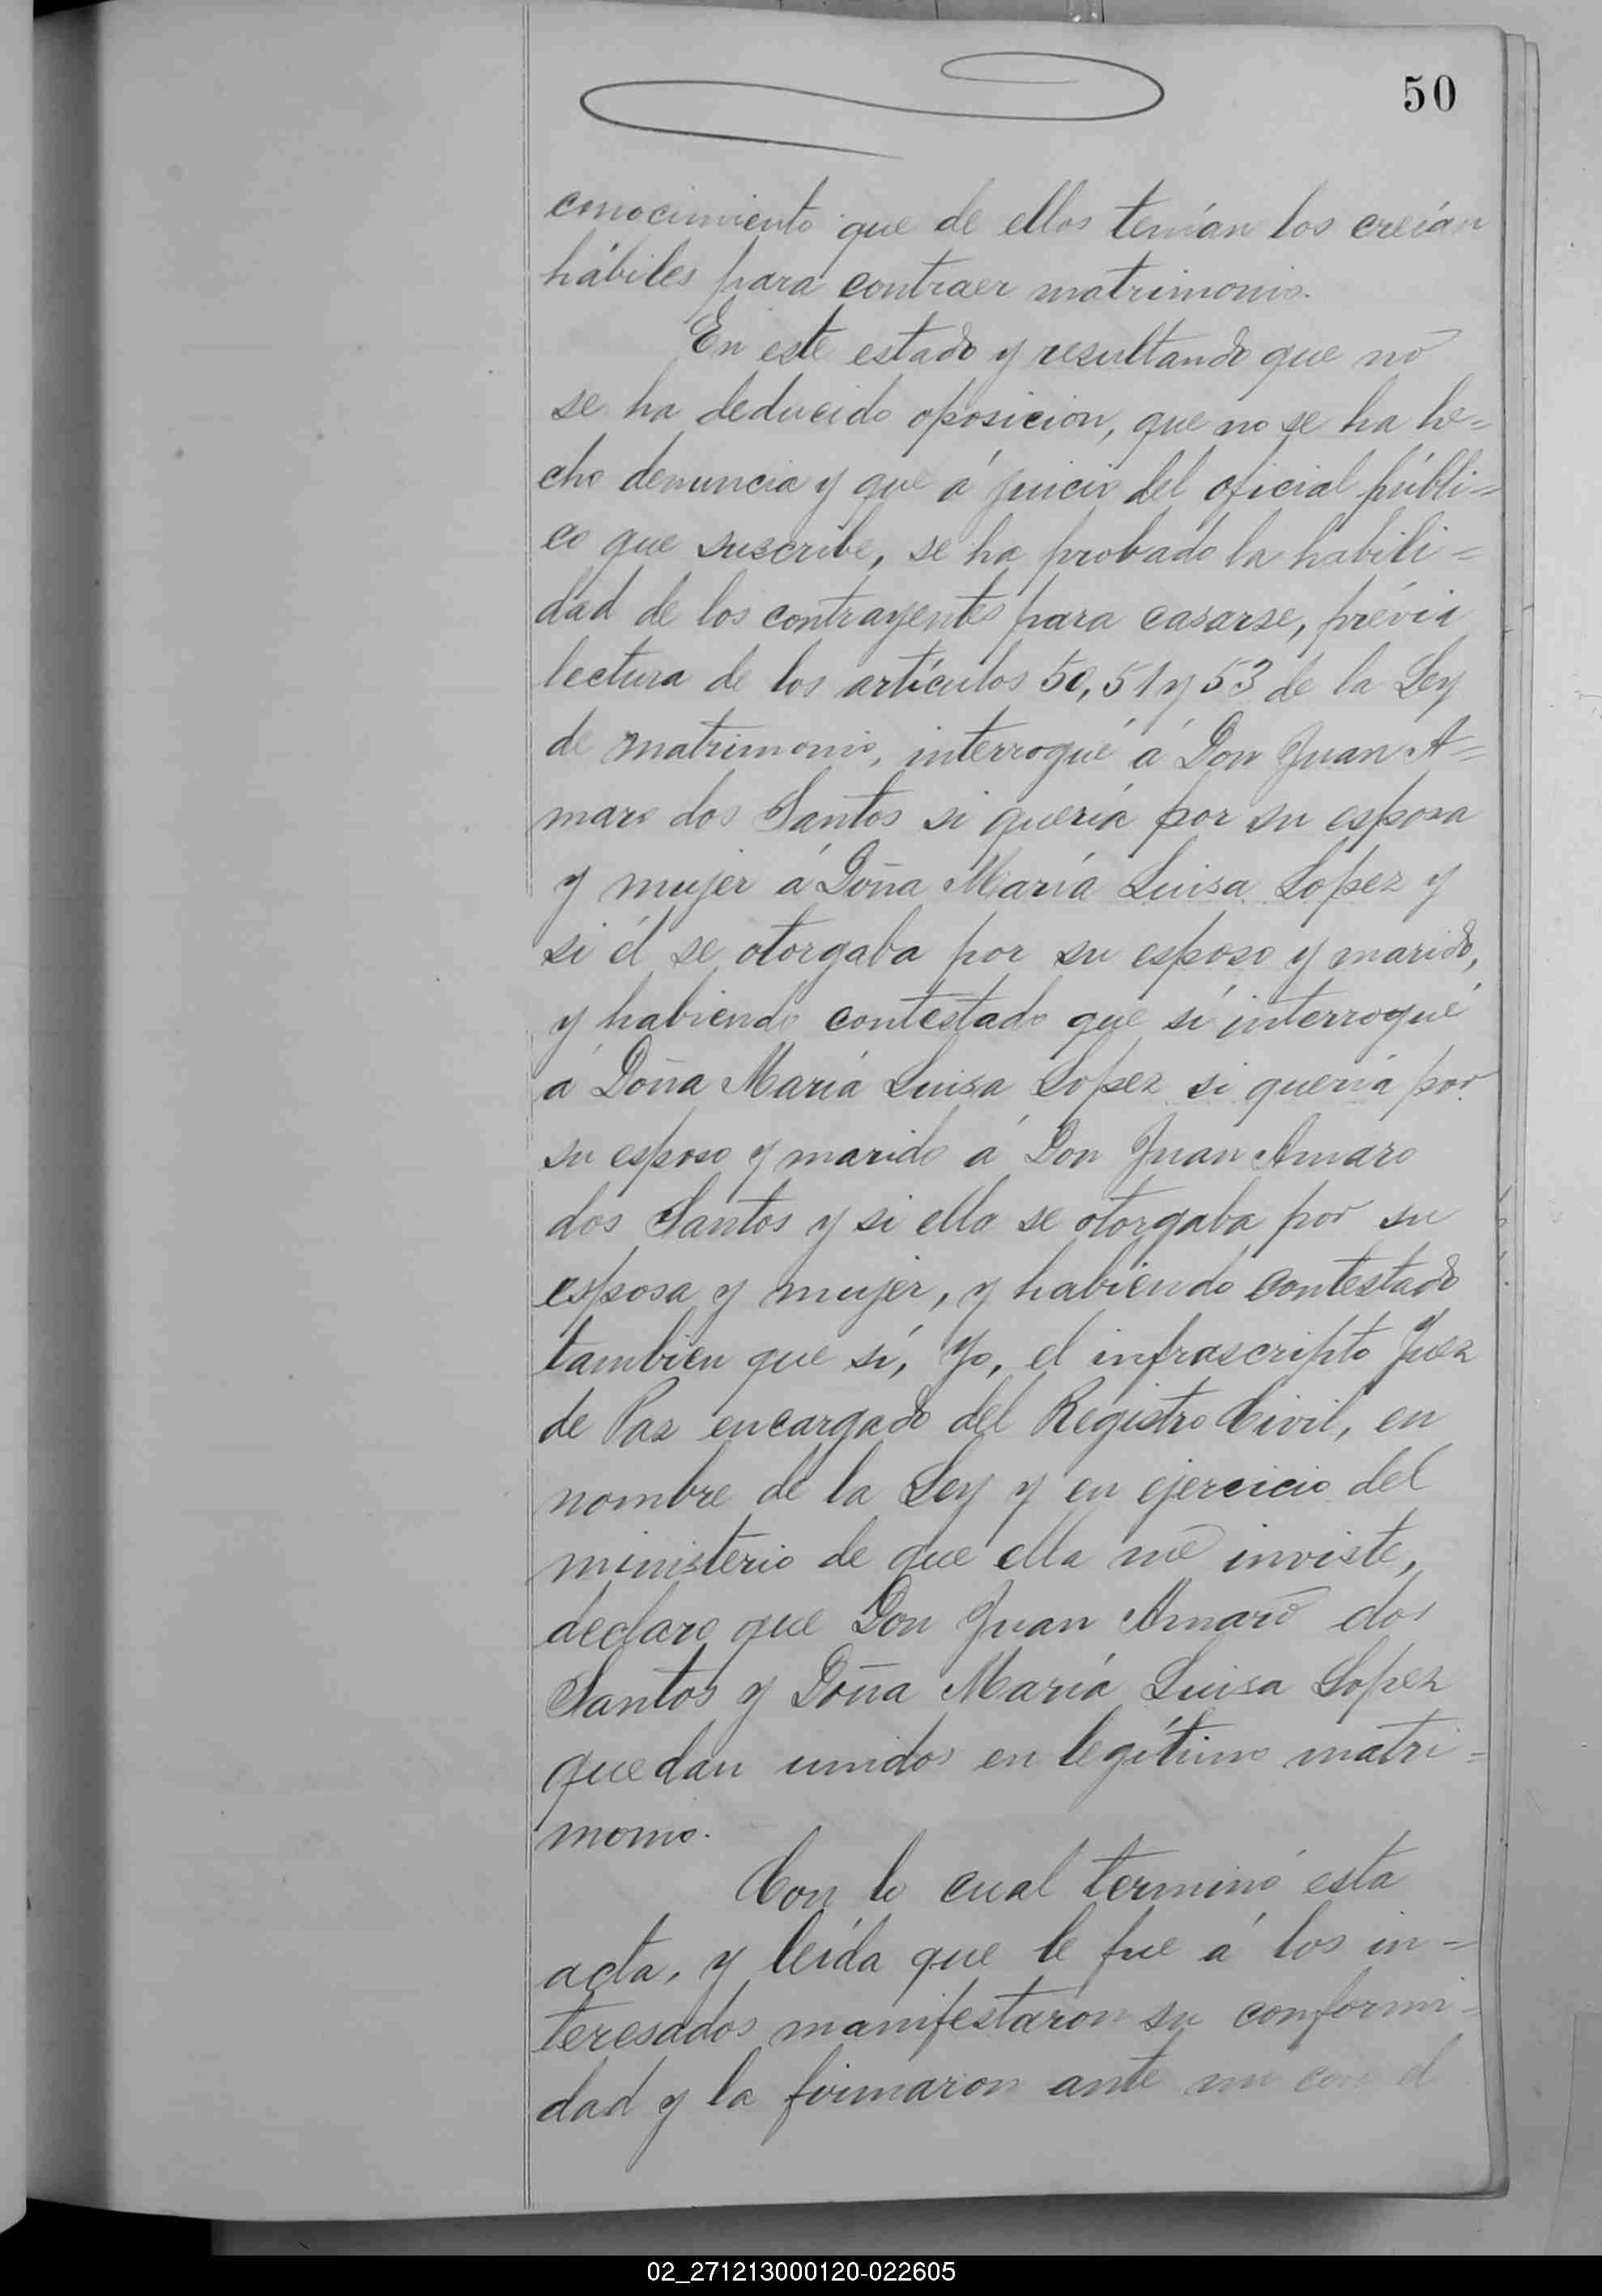 50
conocimiento que de ellos tenían los creían
hábiles para contraer matrimonio.
En este estado y resultando que no
se ha deducido oposicion, que no se ha he=
cho denuncia y que á juicio del oficial públi=
co que suscribe, se ha probado la habili=
dad de los contrayentes para casarse, prévia
lectura de los artículos 50, 51 y 53 de la Ley
de matrimonio, interrogué á Don Juan A=
maro dos Santos si quería por su esposa
y mujer á Doña María Luisa Lopez y
si él se otorgaba por su esposo y marido,
y habiendo contestado que sí interrogué
á Doña María Luisa Lopez si quería por
su esposo y marido á Don Juan Amaro
dos Santos y si ella se otorgaba por su
esposa y mujer, y habiendo contestado
tambien que sí, Yo, el infrascripto Juez
de Paz encargado del Registro Civil, en
nombre de la Ley y en ejercicio del
ministerio de que ella me inviste,
declaro que Don Juan Amaro dos
Santos y Doña María Luisa Lopez
quedan unidos en legítimo matri=
monio.
Con lo cual terminó esta
acta, y leída que le fue á los in=
teresados manifestaron su conformi=
dad y la firmaron ante mi con el
02_271213000120-022605